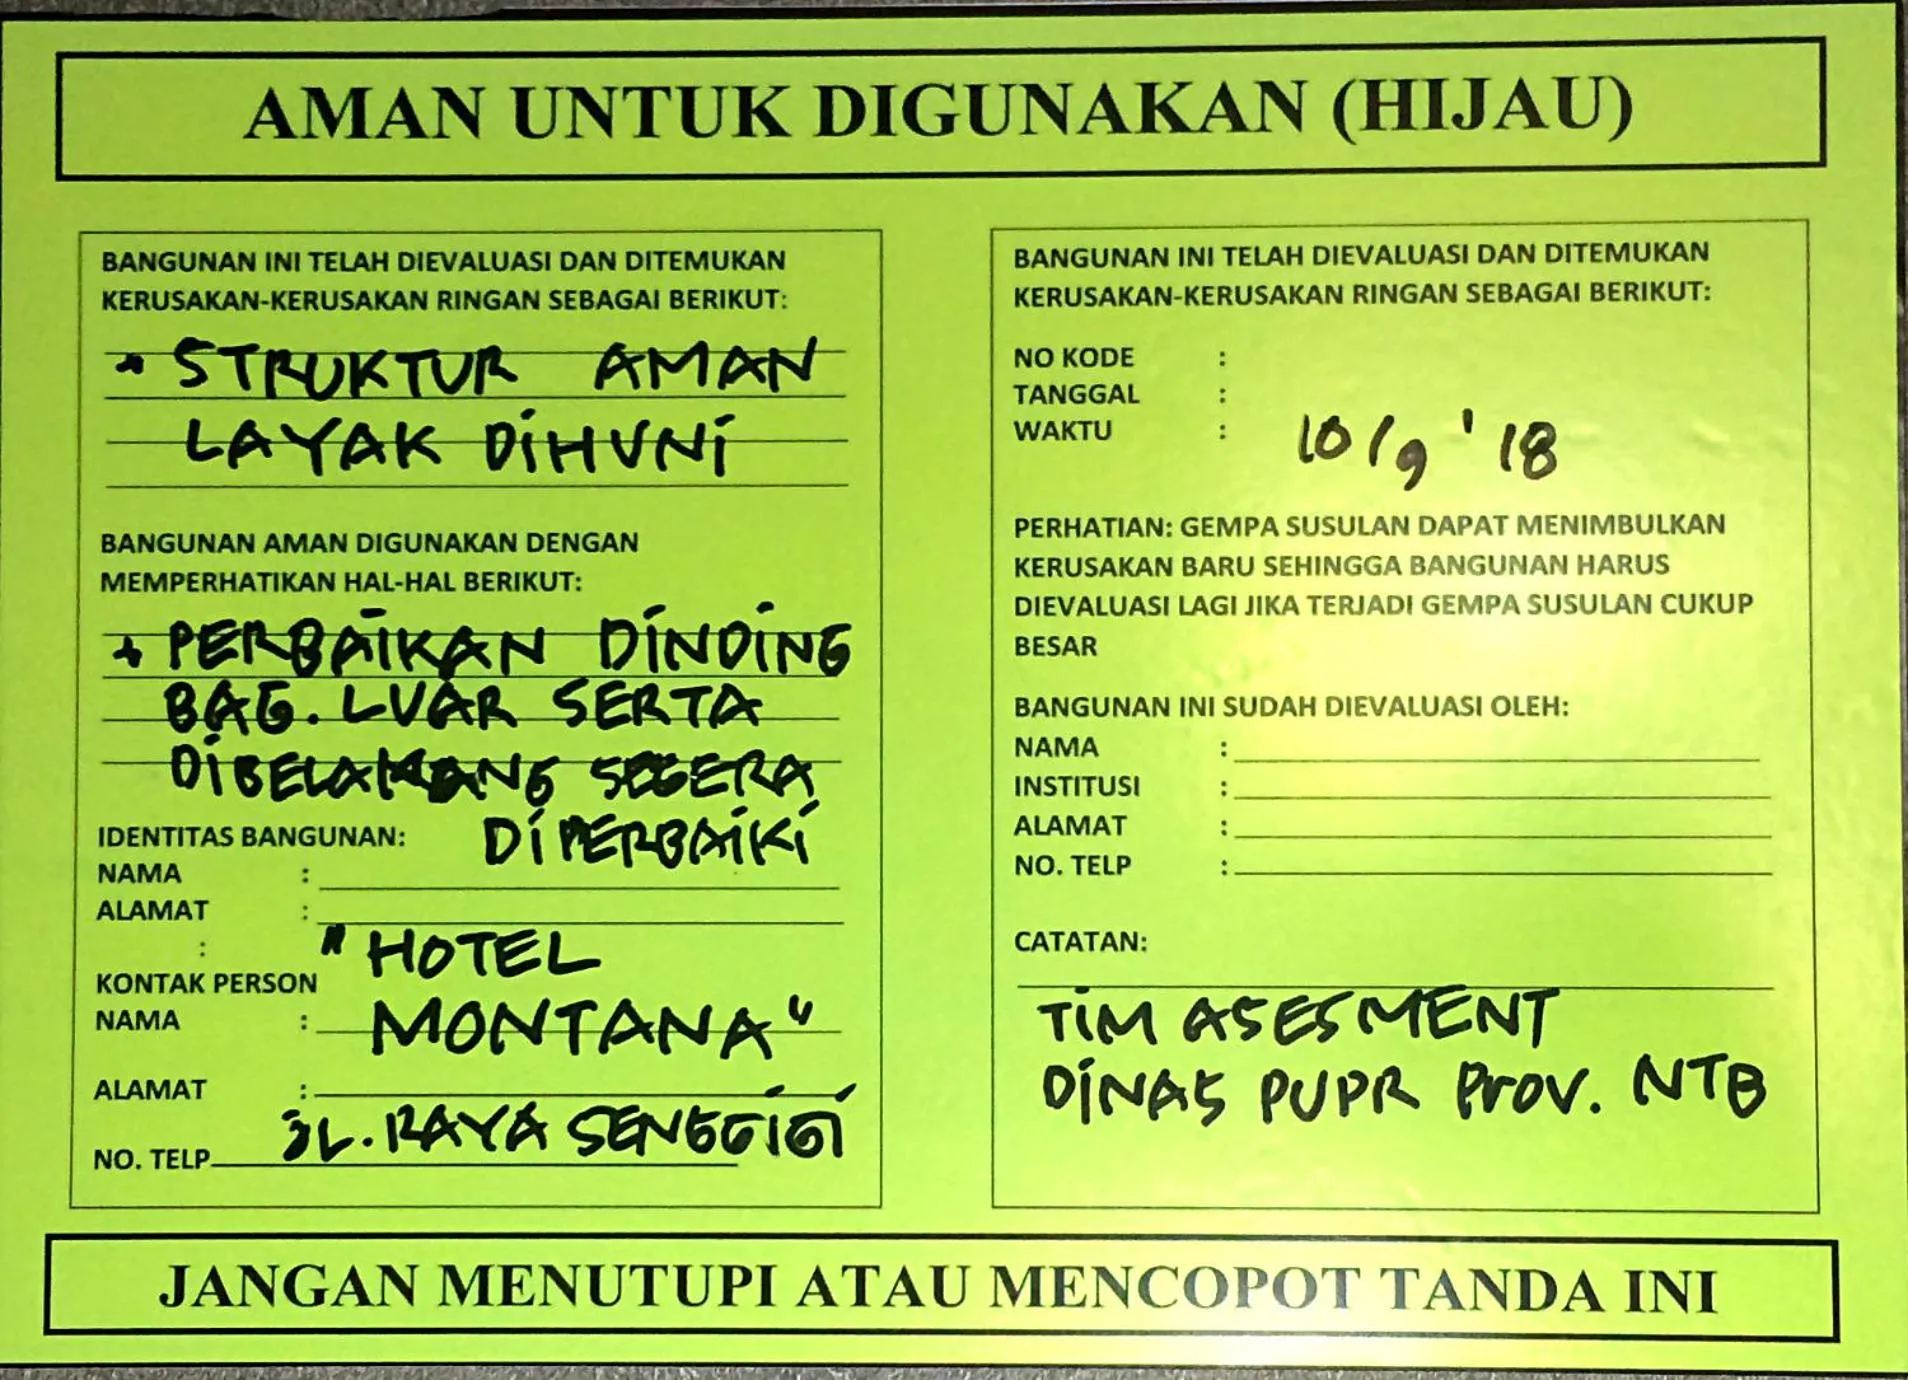 AMAN UNTUK DIGUNAKAN (HIJAU)
BANGUNAN INI TELAH DIEVALUASI DAN DITEMUKAN
KERUSAKAN-KERUSAKAN RINGAN SEBAGAI BERIKUT:
• STRUKTUR AMAN
LAYAK DIHUNI
BANGUNAN AMAN DIGUNAKAN DENGAN
MEMPERHATIKAN HAL-HAL BERIKUT:
+ PERBAIKAN DINDING
BAG. LUAR SERTA
DIBELAKANG SEGERA
DIPERBAIKI
IDENTITAS BANGUNAN:
NAMA :
ALAMAT :
:
"HOTEL
KONTAK PERSON
NAMA : MONTANA"
ALAMAT :
JL. RAYA SENGGIGI
NO. TELP
BANGUNAN INI TELAH DIEVALUASI DAN DITEMUKAN
KERUSAKAN-KERUSAKAN RINGAN SEBAGAI BERIKUT:
NO KODE :
TANGGAL :
WAKTU : 10/9 '18
PERHATIAN: GEMPA SUSULAN DAPAT MENIMBULKAN
KERUSAKAN BARU SEHINGGA BANGUNAN HARUS
DIEVALUASI LAGI JIKA TERJADI GEMPA SUSULAN CUKUP
BESAR
BANGUNAN INI SUDAH DIEVALUASI OLEH:
NAMA :
INSTITUSI :
ALAMAT :
NO. TELP :
CATATAN:
TIM ASESMENT
DINAS PUPR PROV. NTB
JANGAN MENUTUPI ATAU MENCOPOT TANDA INI